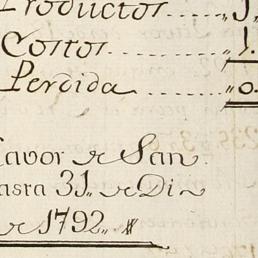 Productos ,, 1,
Costos ,, 1.
Perdida ,, 0.
favor de San
hasta 31,, de Di
de 1792,,